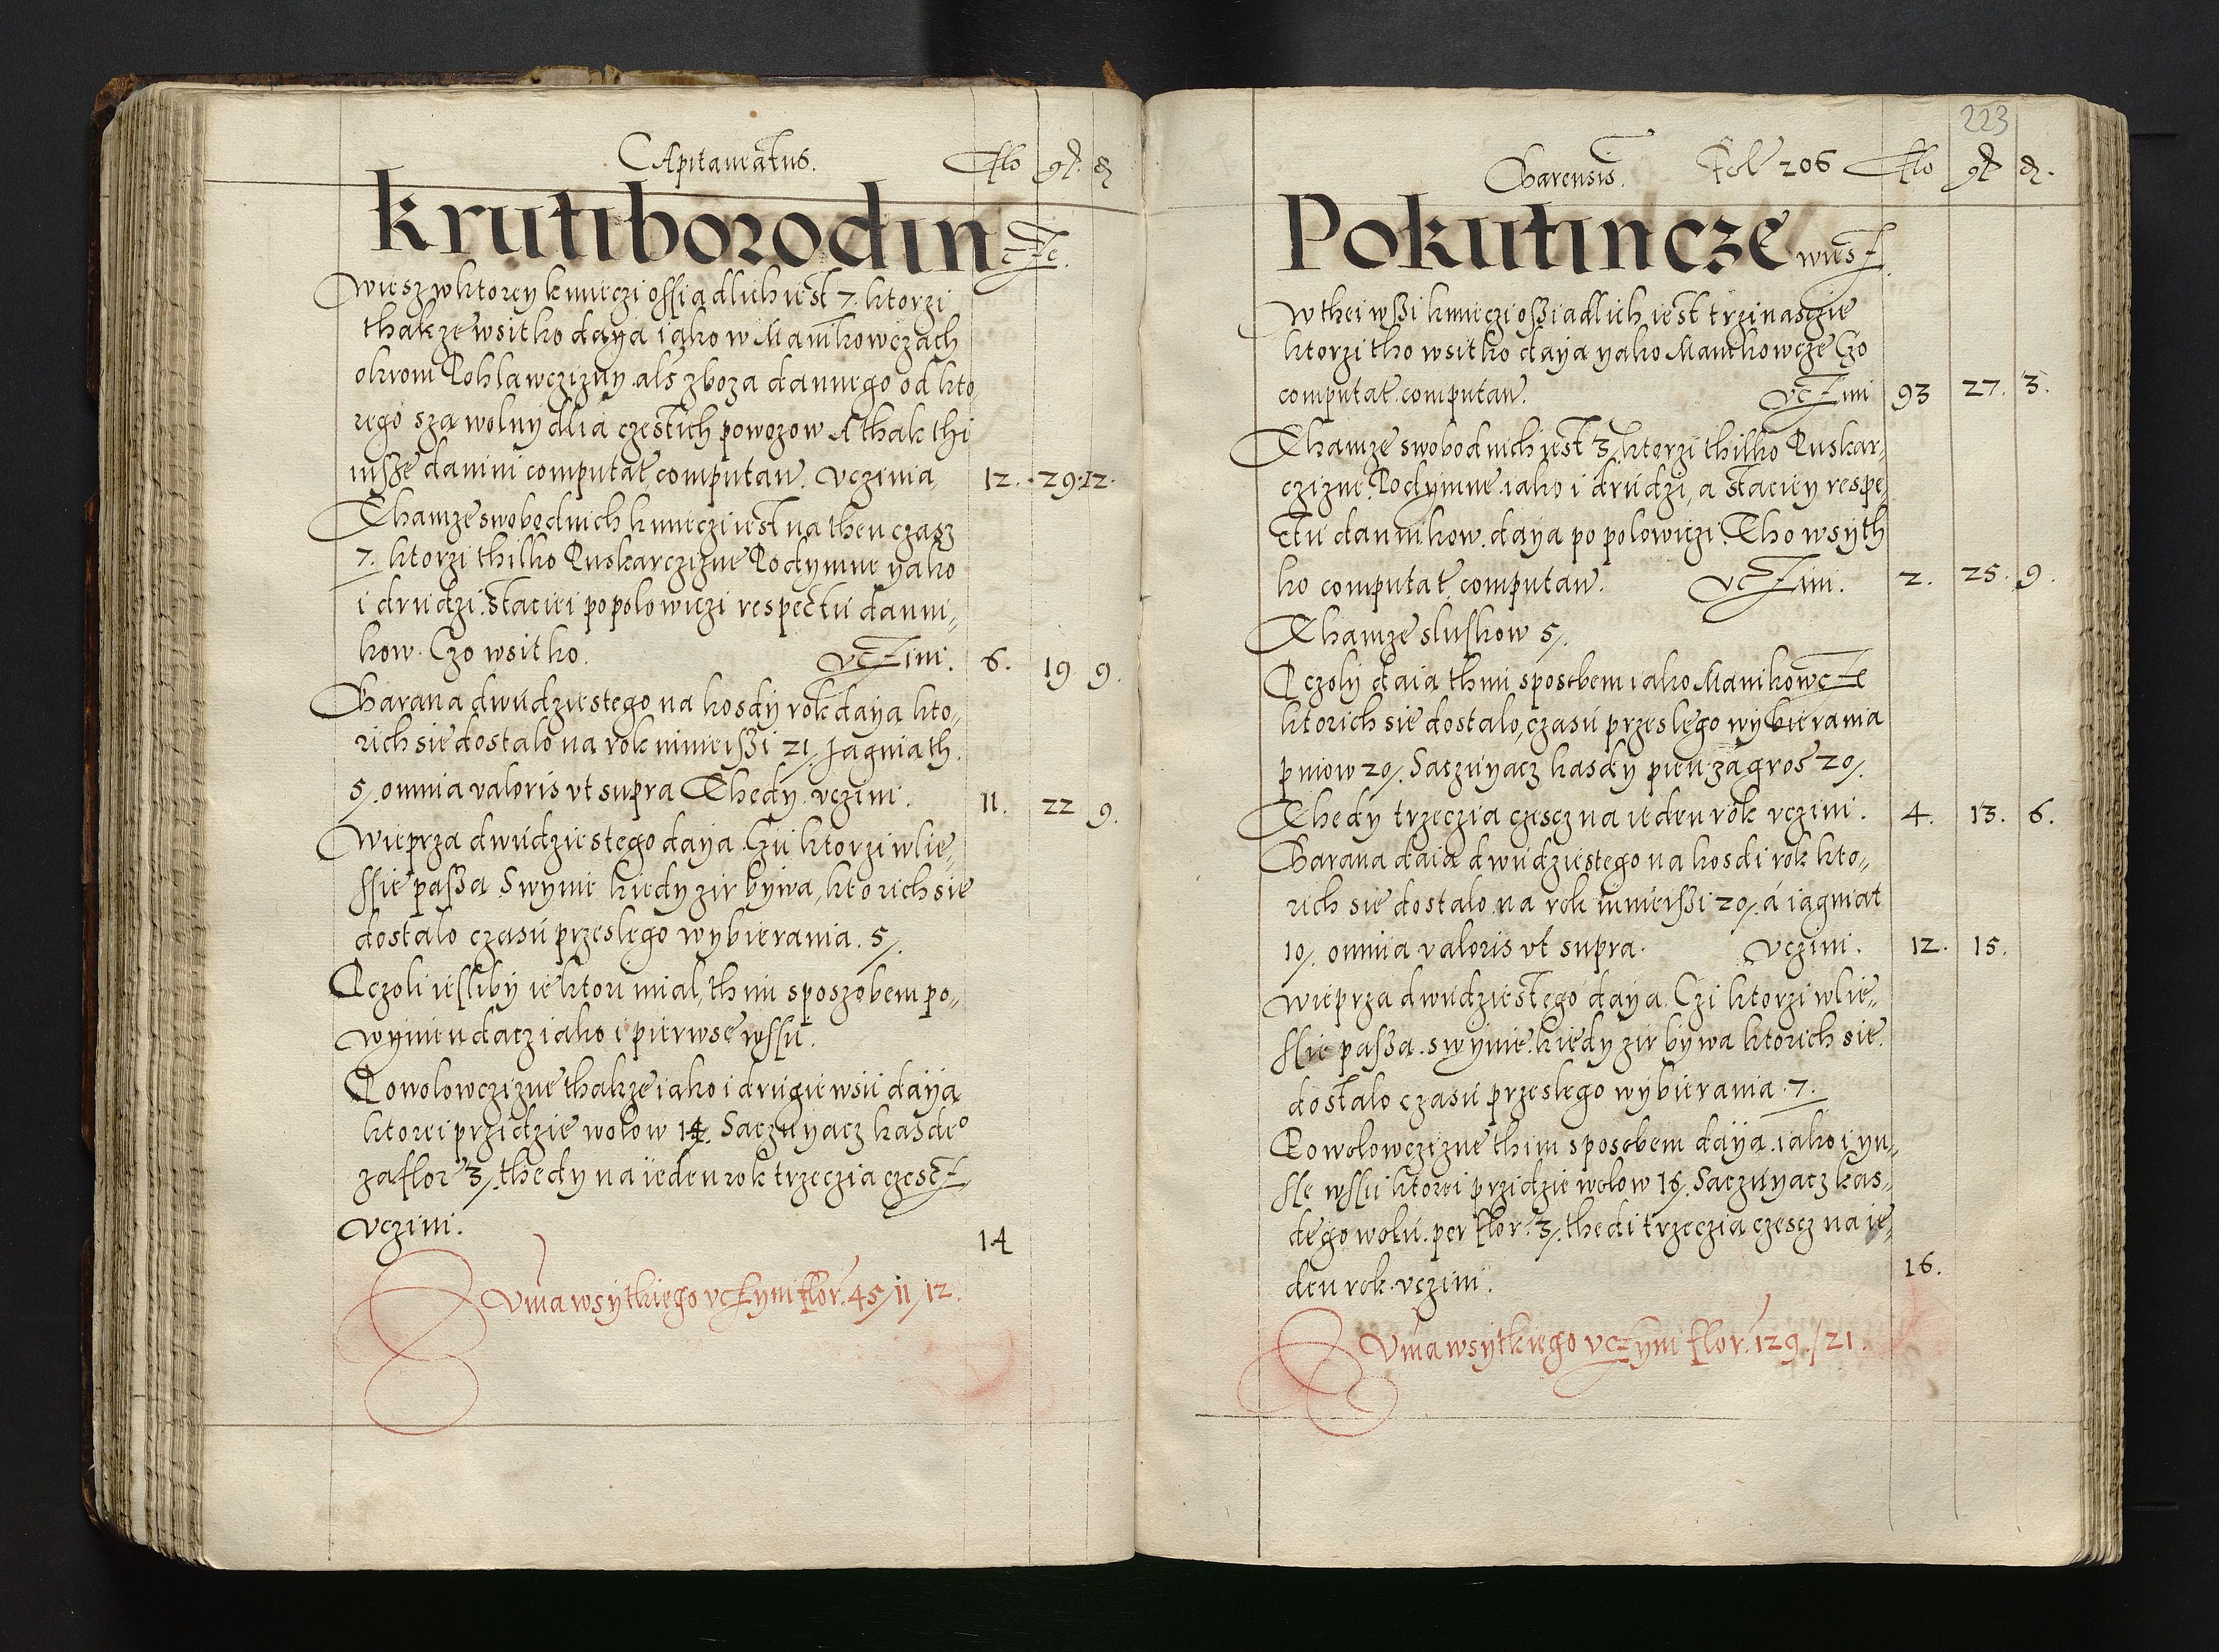 Capitaneatus. Flo gr d
Krutiborodincze.
Wiesz w ktorey kmieczi ossiadlich iest 7. ktorzi
thakze wsitko daya iako w Manikowczach
okrom Pohlawczizny als zboza dannego od kto
rego sza wolny dlia czestich powozow A thak thi
insze danini computat. computan. vczinia 12. 29. 12.
Thamze swobodnich kmieczi iest na then czasz
7. ktorzi thilko Puskarczizne Podymne yako
i drudzi. staciei po polowiczi respectu danni„
kow. Czo wsitko. vczini. 6. 19 9.
Barana dwudziestego na kosdy rok daya kto„
rich sie dostalo na rok ninieissi 21/. Jagniath.
5/. omnia valoris vt supra Thedy vczini. 11. 22 9.
Wieprza dwudziestego daya. Czi ktorzi w lie„
ssie passa Swynie kiedy zir bywa, ktorich sie
dostalo czasu przeslego wybierania. 5/.
Pczoli iesliby ie kton mial, thim sposzobem po„
wynien dacz iako i pierwse wssii.
Powolowczizne thakze iako i drugie wsii daya
ktorei przidzie wolow 14. Saczuyacz kasde°
za flor 3/. thedy na ieden rok trzeczia czescz
vczini. 14
Suma wsytkiego vczyni flor. 45/11/12.
223
Barensis. Fol 206 Flo gr d.
Pokutincze wiesz.
W thei wssi kmieczi ossiadlich iest trzinascie
ktorzi tho wsitko daya yako Manikowcze Czo
computat. computan. vczini 93 27. 3.
Thamze swobodnich iest 3/. ktorzi thilko Puskar„
czizne. Podymne. iako i drudzi, a staciey respe„
ctu dannikow. daya po polowiczi. Tho wsyth
ko computat. computan. vczini. 2. 25. 9.
Thamze sluskow 5/.
Pczoly daia thim sposobem iako Manikowcze
ktorich sie dostalo, czasu przeslego wybierania
pniow 20/. Saczuyacz kasdy pien za gros 20/.
Thedy trzeczia czescz na ieden rok vczini. 4. 13. 6.
Barana daia dwudziestego na kosdi rok kto„
rich sie dostalo na rok ninieissi 20/. a iagniat
10/. omnia valoris vt supra. vczini. 12. 15.
Wieprza dwudziestego daya. Czi ktorzi w lie„
ssie passa. swynie. kiedy zir bywa ktorich sie.
dostalo czasu przeslego wybierania. 7.
Powolowczizne thim sposobem daya. iako i yn„
sse wssii ktorei przidzie wolow 16/. Saczuyacz kas„
dego wolu. per flor. 3/. thedi trzeczia czescz na ie„
den rok vczini. 16.
Suma wsytkiego vczyni flor. 129./21.